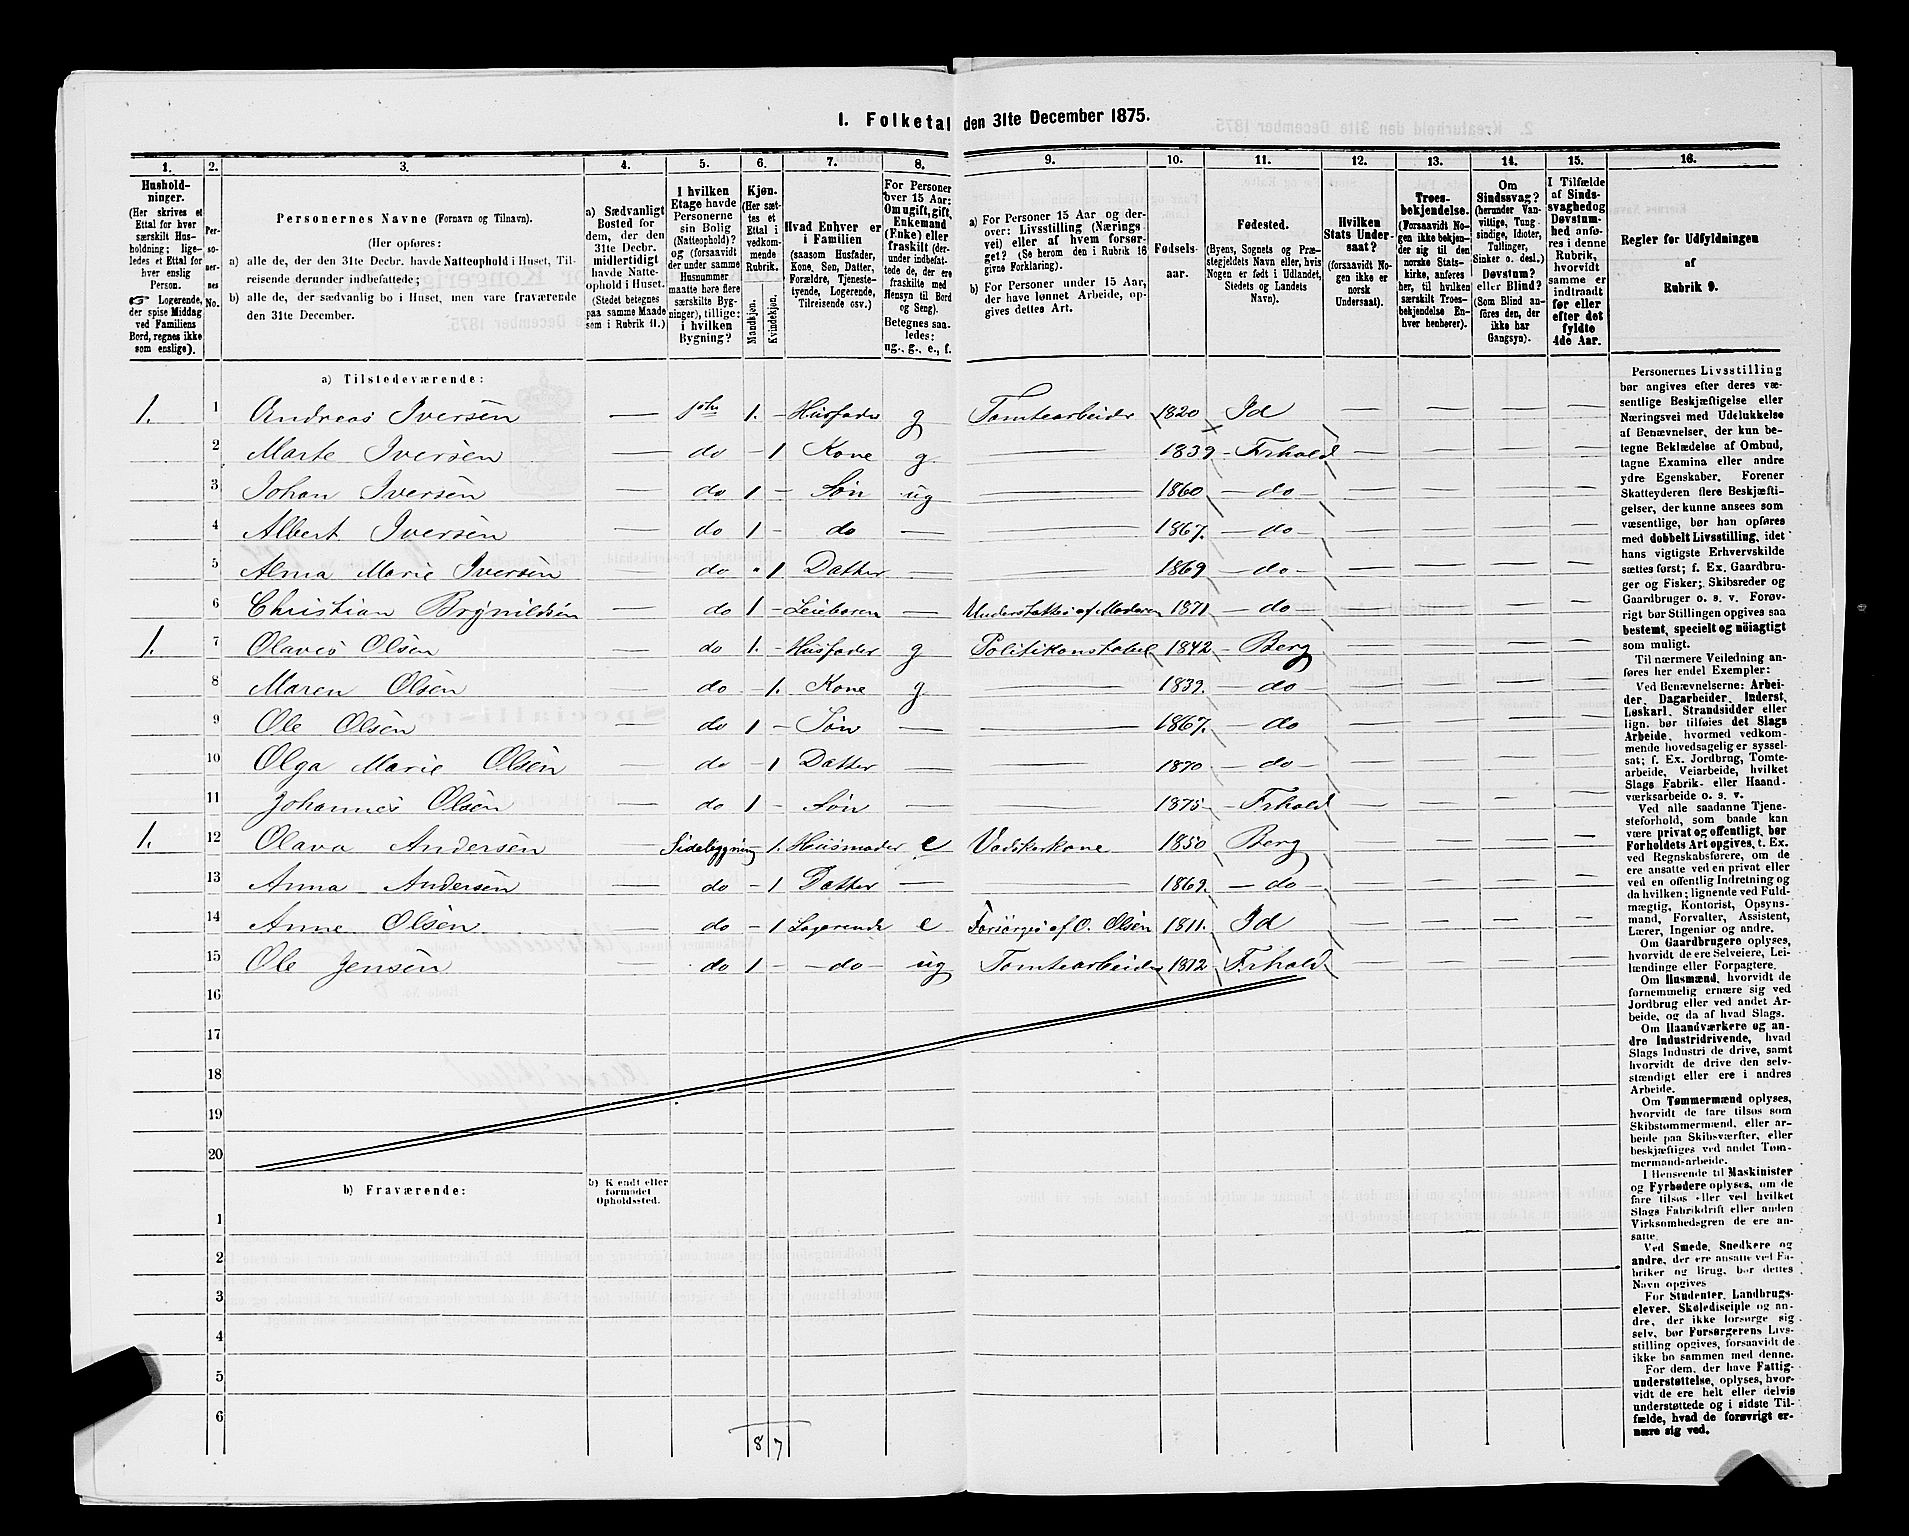 1. Folketal den 31te December 1875.
1. 2. 3. 4. 5. 6. 7. 8. 9. 10. 11. 12. 13. 14. 15. 16.
Hushold-
ninger.
(Her skrives et
Ettal for hver
særskilt Hus-
holdning; lige-
ledes et Ettal for
hver enslig
Person.
☞ Logerende,
der spise Middag
ved Familiens
Bord, regnes ikke
som enslige).
Per-
so-
ner-
nes
No.
Personernes Navne (Fornavn og Tilnavn).
(Her opføres:
a) alle de, der den 31te Decbr. havde Natteophold i Huset, Til-
reisende derunder indbefattede;
b) alle de, der sædvanlig bo i Huset, men vare fraværende
den 31te December.
a) Sædvanligt
Bosted for
dem, der den
31te Decbr.
midlertidigt
havde Natte-
ophold i Huset.
(Stedet betegnes
paa samme Maade
som i Rubrik 11.)
I hvilken
Etage havde
Personerne
sin Bolig
(Natteophold)?
og (forsaavidt
der under samme
Husnummer
maatte høre flere
særskilte Byg-
ninger), tillige:
i hvilken
Bygning?
Kjøn.
(Her sæt-
tes et
Ettal i
vedkom-
mende
Rubrik.
Mandkjøn.
Kvindekjøn.
Hvad Enhver er
i Familien
(saasom Husfader,
Kone, Søn, Datter,
Forældre, Tjeneste-
tyende, Logerende,
Tilreisende osv.)
For Personer
over 15 Aar:
Om ugift, gift,
Enkemand
(Enke) eller
fraskilt (der-
under indbefat-
tede de, der ere
fraskilte med
Hensyn til Bord
og Seng).
Betegnes saa-
ledes:
ug., g., e., f.
a) For Personer 15 Aar og der-
over: Livsstilling (Nærings-
vei) eller af hvem forsør-
get? (Se herom den i Rubrik 16
givne Forklaring).
b) For Personer under 15 Aar,
der have lønnet Arbeide, op-
gives dettes Art.
Fødsels-
aar.
Fødested.
(Byens, Sognets og Præ-
stegjeldets Navn eller, hvis
Nogen er født i Udlandet,
Stedets og Landets
Navn).
Hvilken
Stats Under-
saat?
(forsaavidt No-
gen ikke er
norsk
Undersaat).
Troes-
bekjendelse.
(Forsaavidt No-
gen ikke bekjen-
der sig til den
norske Stats-
kirke, anføres
her, til hvilken
særskilte Troes-
bekjendelse En-
hver henhører).
Om
Sindssvag?
(herunder Van-
vittige, Tung-
sindige, Idioter,
Tullinger,
Sinker o. desl.)
Døvstum?
eller Blind?
(Som Blind an-
føres den, der
ikke har
Gangsyn).
I Tilfælde
af Sinds-
svaghed og
Døvstum-
hed anfø-
res i denne
Rubrik,
hvorvidt
samme er
indtraadt
før eller
efter det
fyldte
4de Aar.
Regler for Udfyldningen
af
Rubrik 9.
a) Tilstedeværende:
1. 1 Andreas Iversen — 1ste 1. — Husfader g Tomtearbeider 1820 Id — — — —
2 Marte Iversen — do — 1 Kone g — 1839 — Frhald — — — —
3 Johan Iversen — do 1 — Søn ug — 1860 — do — — — — —
4 Albert Iversen — do 1 — do — — 1867. — do — — — — —
5 Alma Marie Iversen — do " 1 Datter — — 1869 — do — — — — —
6 Christian Brynildsen — do 1 — Leieboren — Understøttes af Moderen 1871. — do — — — — —
1. 7 Olaves Olsen — do 1. — Husfader g Politikonstabel 1842 — Berg — —
8 Maren Olsen — do — 1. Kone g — 1839. — do — — — — —
9 Ole Olsen — do 1 — Søn — — 1867. — do — — — — —
10 Olga Marie Olsen — do — 1 Datter — — 1870 — do — — — — —
11 Johannes Olsen — do 1 — Søn — — 1875 — Frhald — — — —
1. 12 Olava Andersen — Sidebygning 1. Husmoder e Vadskerkone 1850 Berg — — — —
13 Anna Andersen — do — 1 Datter — — 1869. — do — — — — —
14 Anne Olsen — do — 1 Logerende e Forsørges af O. Olsen 1811. Id — — — —
15 Ole Jensen — do 1 — — do — ug Tomtearbeider 1812 Frhald — — — —
16
17
18
19
20
b) Fraværende:
b) Kjendt eller
formodet
Opholdssted.
1
2
3
4
5
6
8 7
Personernes Livsstilling
bør angives efter deres væ-
sentlige Beskjæftigelse eller
Næringsvei med Udelukkelse
af Benævnelser, der kun be-
tegne Beklædelse af Ombud,
tagne Examina eller andre
ydre Egenskaber. Forener
Skatteyderen flere Beskjæfti-
gelser, der kunne ansees som
væsentlige, bør han opføres
med dobbelt Livsstilling, idet
hans vigtigste Erhvervskilde
sættes først; f. Ex. Gaardbru-
ger og Fisker; Skibsreder og
Gaardbruger o. s. v. Forøv-
rigt bør Stillingen opgives saa
bestemt, specielt og nöiagtigt
som muligt.
Til nærmere Veiledning an-
føres her endel Exempler:
Ved Benævnelserne: Arbei-
der, Dagarbeider, Inderst,
Løskarl, Strandsidder eller
lign. bør tilføies det Slags
Arbeide, hvormed vedkom-
mende hovedsagelig er syssel-
sat; f. Ex. Jordbrug, Tomte-
arbeide, Veiarbeide, hvilket
Slags Fabrik- eller Haand-
værksarbeide o. s. v.
Ved alle saadanne Tjene-
steforhold, som baade kan
være privat og offentligt, bør
Forholdets Art opgives, t. Ex.
ved Regnskabsførere, om de
ere ansatte ved en privat eller
ved en offentlig Indretning og
da hvilken; lignende ved Fuld-
mægtig, Kontorist, Opsyns-
mand, Forvalter, Assistent,
Lærer, Ingeniør og andre.
Om Gaardbrugere oplyses,
hvorvidt de ere Selveiere, Lei-
lændinge eller Forpagtere.
Om Husmænd, hvorvidt de
fornemmelig ernære sig ved
Jordbrug eller ved andet Ar-
beide, og da af hvad Slags.
Om Haandværkere og an-
dre Industridrivende, hvad
Slags Industri de drive, samt
hvorvidt de drive den selv-
stændigt eller ere i andres
Arbeide.
Om Tømmermænd oplyses,
hvorvidt de fare tilsøs som
Skibstømmermænd, eller ar-
beide paa Skibsværfter, eller
beskjæftiges ved andet Tøm-
mermandarbeide.
I Henseende til Maskinister
og Fyrbødere oplyses, om de
fare tilsøs eller ved hvilket
Slags Fabrikdrift eller anden
Virksomhedsgren de ere an-
satte.
Ved Smede, Snedkere og
andre, der ere ansatte ved Fa-
briker og Brug, bør dettes
Navn opgives
For Studenter, Landbrugs-
elever, Skoledisciple og an-
dre, der ikke forsørge sig
selv, bør Forsørgerens Livs-
stilling opgives, forsaavidt de
ikke bo sammen med denne.
For dem, der have Fattig-
understøttelse, oplyses, hvor-
vidt de ere helt eller delvis
understøttede og i sidste Til-
fælde, hvad de forøvrigt er-
nære sig ved.